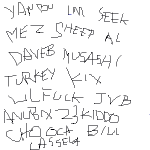 YANDOU LAA SEEK
MEZ SHEEP AL
DAVEB MUSASHI
TURKEY KIX
WLFUCK JVB
ANUBIX Z3KIDDO
CHOLOCA BILL
LASSELA